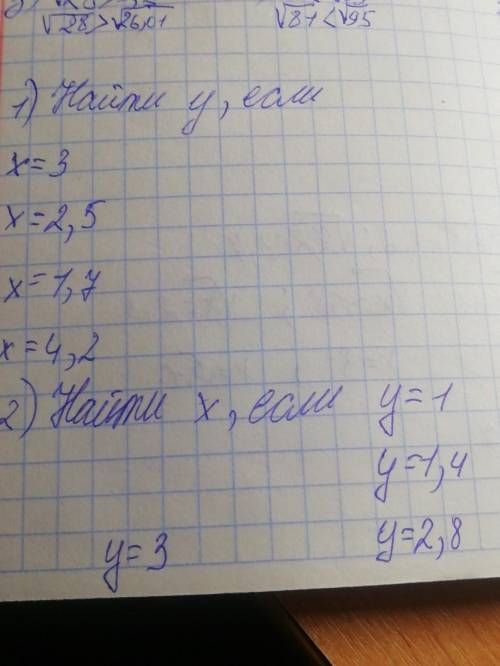 √28 > √26,01 √87 < √95
1) Найти y, если
x = 3
x = 2,5
x = 1,7
x = 4,2
2) Найти x, если y = 1
y = 1,4
y = 3 y = 2,8